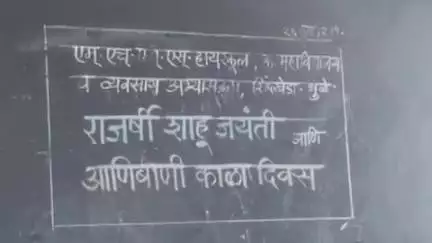 एम.एच.एस.एस.हायस्कुल, क. महाविद्यालय
व व्यवसाय अभ्यासक्रम, शिंदखेडा. धुळे.
राजर्षी शाहू जयंती आणि
आणिबाणी काळा दिवस